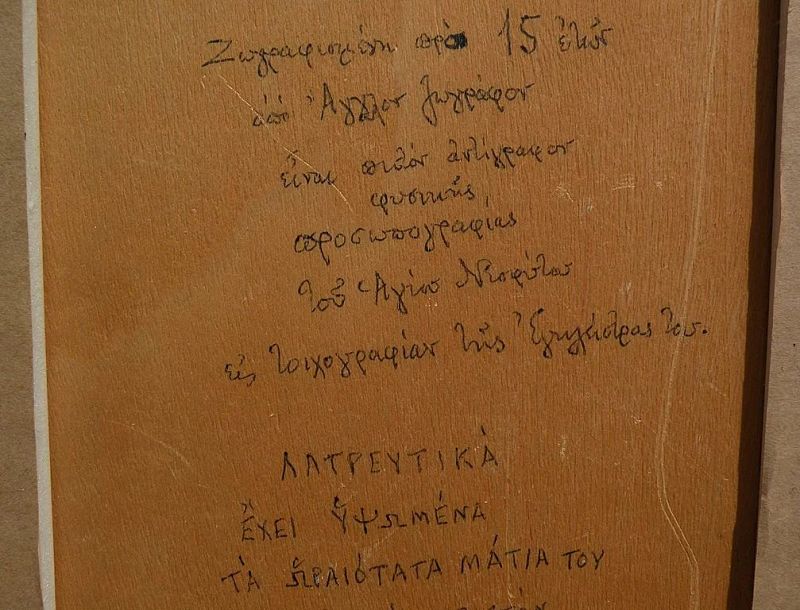 Ζωγραφισμένη πρὸ 15 ἐτῶν
ἀπὸ Ἄγγλον ζωγράφον
εἶναι πιστὸν ἀντίγραφον
φυσικῆς
προσωπογραφίας
τοῦ Ἁγίου Νεοφύτου
εἰς τοιχογραφίαν τῆς Ἐγκλείστρας του.
ΛΑΤΡΕΥΤΙΚᾺ
ἜΧΕΙ ὙΨΩΜΈΝΑ
ΤᾺ ὩΡΑΙΌΤΑΤΑ ΜΆΤΙΑ ΤΟΥ